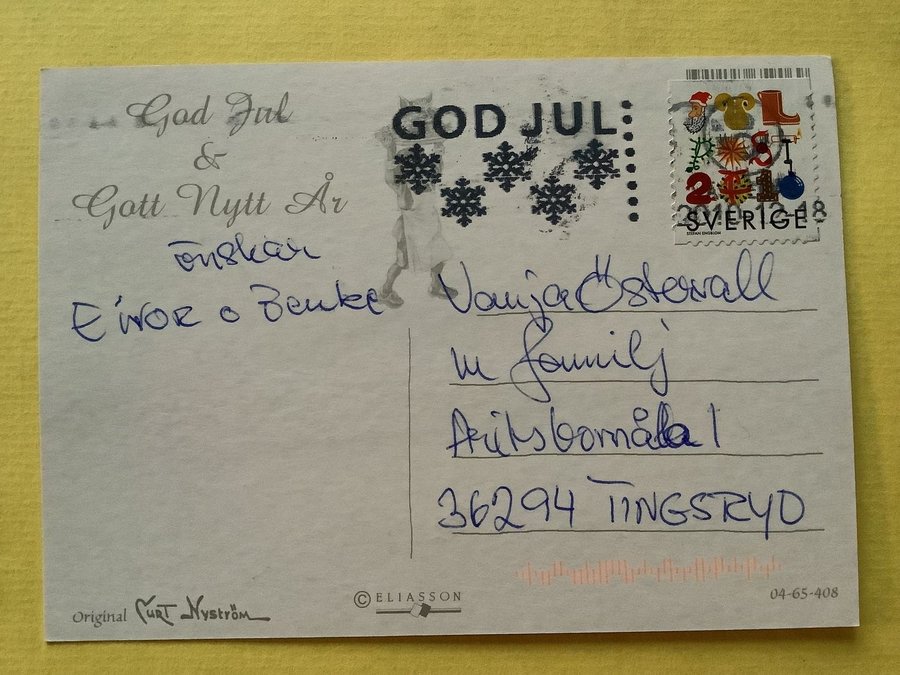 God Jul
&
Gott Nytt År
önskar
Eivor o Benke
GOD JUL
2010-12-18
SVERIGE
STEFAN ENGBLOM
Vanja Östervall
m familj
36294 TINGSRYD
Original CURT NYSTRÖM
© ELIASSON
04-65-408